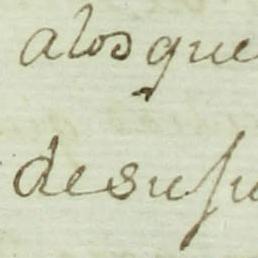 alos que
desu